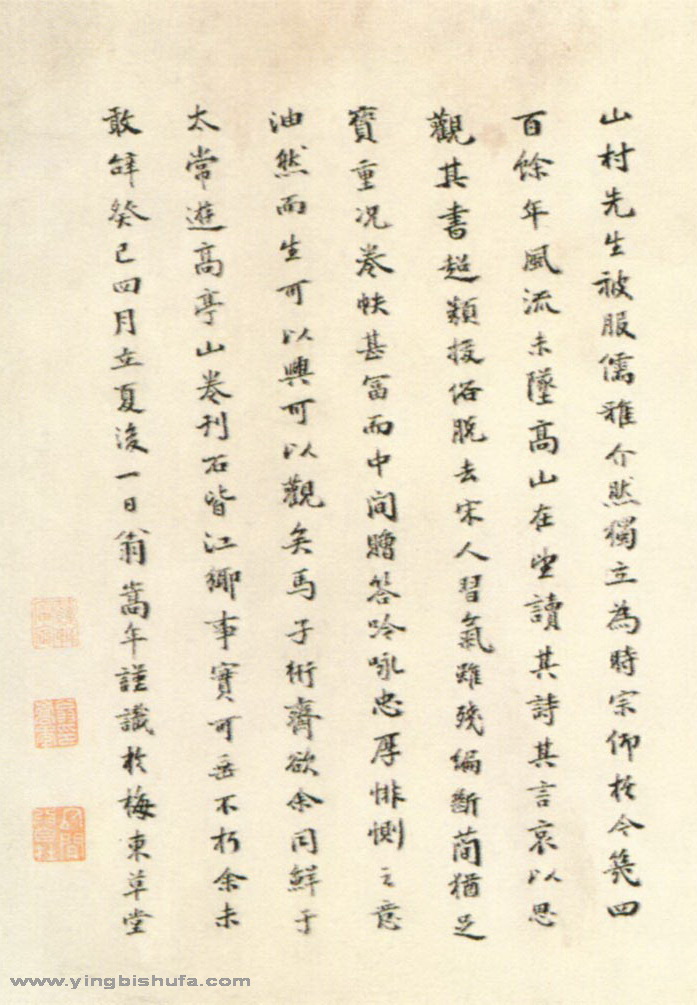 山村先生被服儒雅介然獨立為時宗仰於今㡬四
百餘年風流未墜髙山在望讀其詩其言哀以思
觀其書超類拔俗脱去宋人習氣雖殘編斷簡猶足
寶重况卷帙甚富而中間贈答吟咏忠厚悱惻之意
油然而生可以興可以觀矣馬子衎齋欲余同鮮于
太常遊髙亭山卷刊石皆江鄉事實可垂不朽余未
敢辞癸已四月立夏後一日翁嵩年謹識於梅東草堂
www.yingbishufa.com